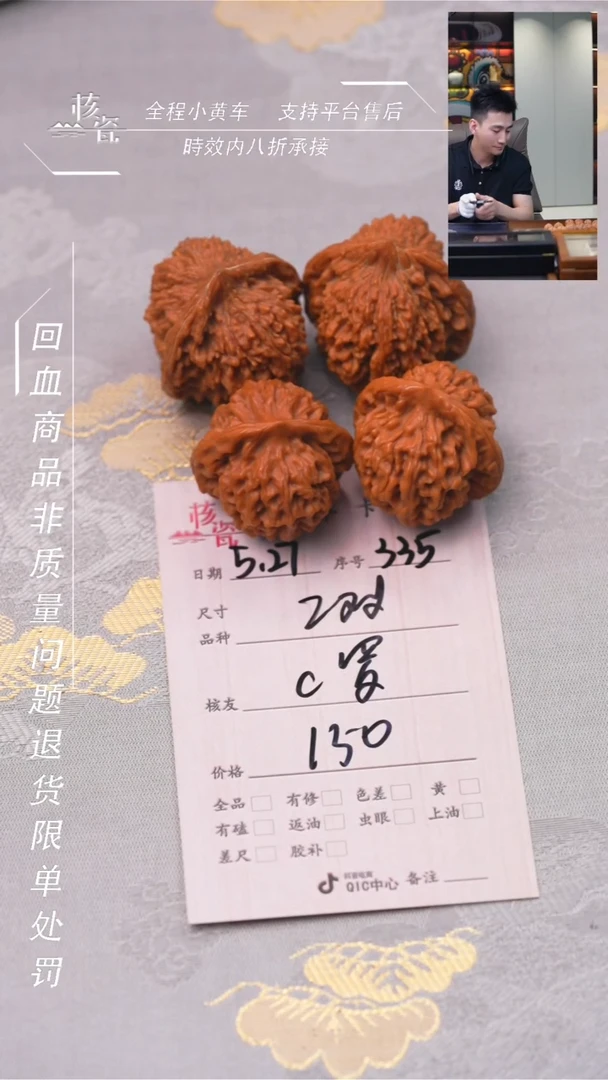 核瓷
全程小黄车 支持平台售后
時效内八折承接
回血商品非质量问题退货限单处罚
核瓷 卡
日期 5.27 序号 335
尺寸 2对
品种
核友 C罗
价格 150
全品 有修 色差 黄
有磕 返油 虫眼 上油
差尺 胶补
抖音电商
QIC中心 备注